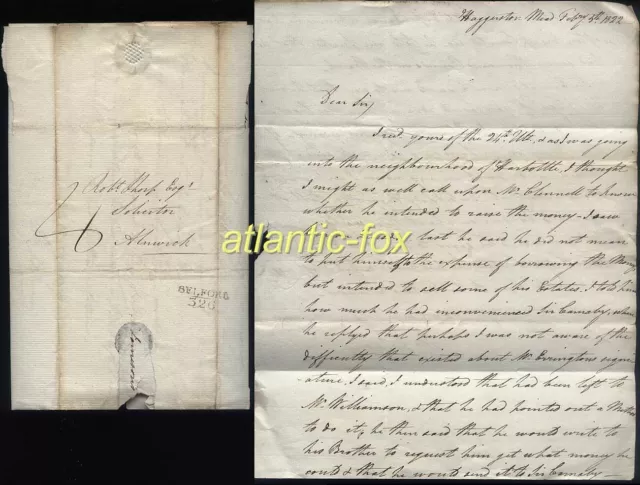 Robt Thorp Esqr
Solicitor
Alnwick
4
BELFORD
326
atlantic-fox
Haggerston Mead Feby 5th 1822
Dear Sir,
I recd. yours of the 24th Ulto, & as I was going
into the neighbourhood of Harbottle, I thought
I might as well call upon Mr Clennell to know
whether he intended to raise the money. I saw
last he said he did not mean
to put himself to the expense of borrowing the Money
but intended to sell some of his Estates. I told him
how much he had inconvenienced Sir Carnaby, when
he replyed that perhaps I was not aware of the
difficulty that existed about Mr Erringtons signature
ature. I said, I understood that had been left to
Mr Williamson, & that he had pointed out a Method
to do it, he then said that he would write to
his Brother to request him get what money he
could & that he would send it to Sir Carnaby —